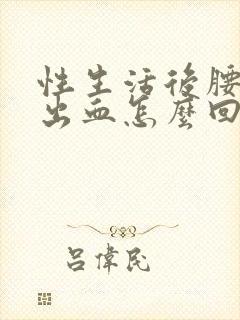 性生活後腰
出血怎麼回
呂偉民